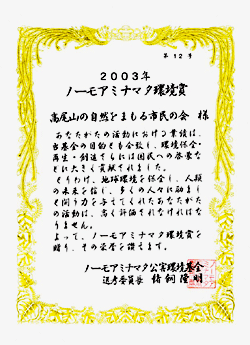 第12号
2003年
ノーモアミナマタ環境賞
高尾山の自然をまもる市民の会 様
あなたがたの活動における業績は、
当基金の目的とも合致し、環境保全・
再生・創造さらには国民への啓蒙な
どに大きく貢献されました。
とりわけ、地球環境を保全し、人類
の未来を信じ、多くの人々に励まし
と闘う力を与えてくれたあなたがた
の活動は、高く評価されなければな
りません。
よって、ノーモアミナマタ環境賞を
贈り、その栄誉を讃えます。
ノーモアミナマタ公害環境基金
選考委員長 隆明